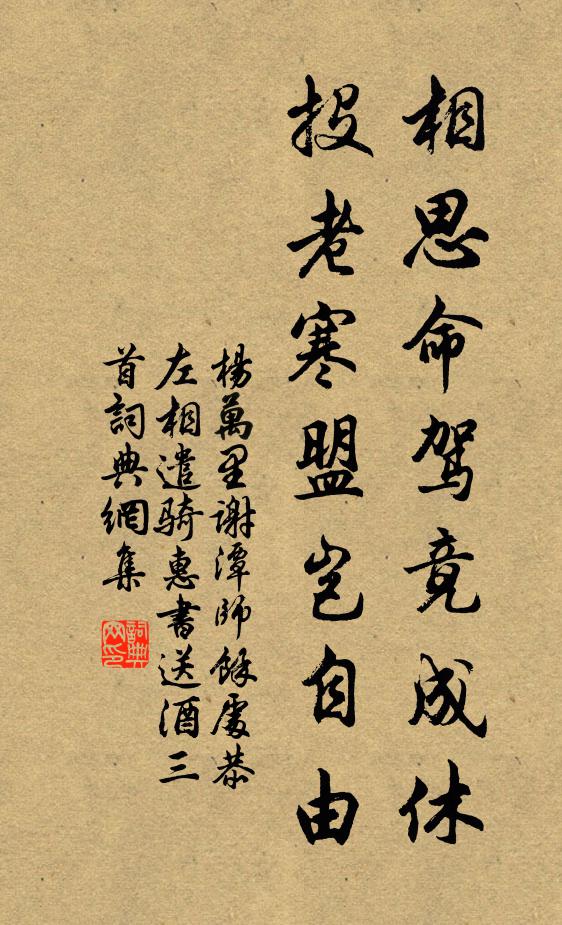 相思命駕竟成休
投老寒盟豈自由
楊萬里謝潭師餘處恭
左相遣騎惠書送酒三
首詞典網集
詞典
網印